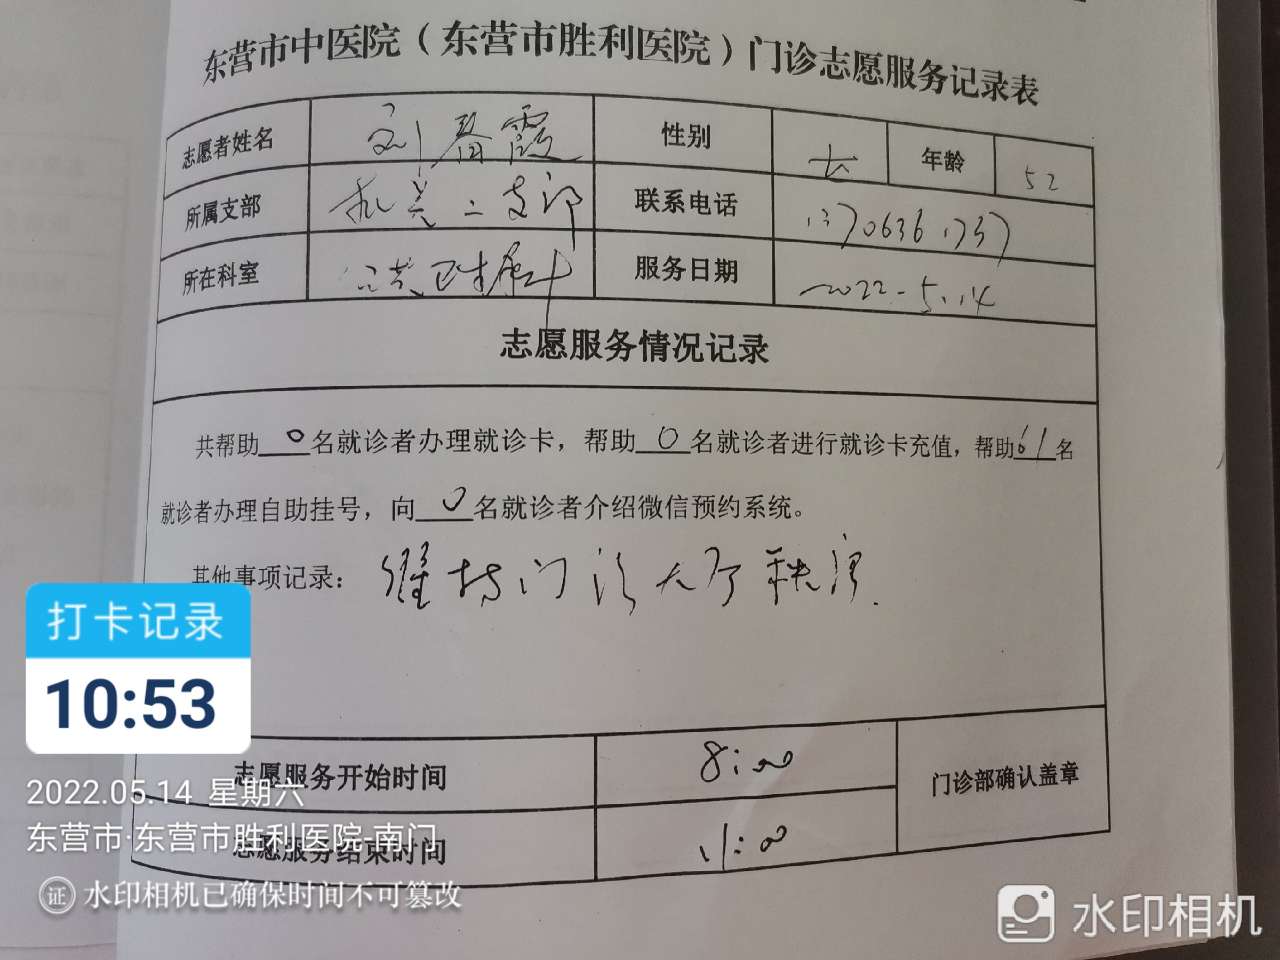 东营市中医院（东营市胜利医院）门诊志愿服务记录表
志愿者姓名 刘春霞 性别 女 年龄 52
所属支部 机关二支部 联系电话 13706361737
所在科室 公共卫生科 服务日期 2022.5.14
志愿服务情况记录
共帮助0名就诊者办理就诊卡，帮助0名就诊者进行就诊卡充值，帮助61名
就诊者办理自助挂号，向0名就诊者介绍微信预约系统。
其他事项记录：维持门诊大厅秩序.
打卡记录
10:53
志愿服务开始时间 8:00 门诊部确认盖章
2022.05.14 星期六
东营市·东营市胜利医院-南门
志愿服务结束时间 11:00
证 水印相机已确保时间不可篡改
水印相机